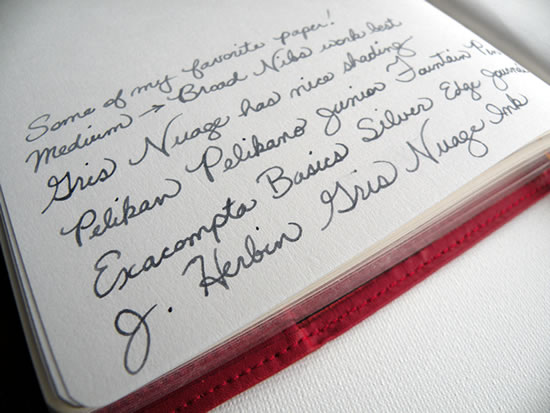 Some of my favorite paper!
Medium → Broad Nibs work best
Gris Nuage has nice shading
Pelikan Pelikano Junior Fountain Pen
Exacompta Basics Silver Edge Journal
J. Herbin Gris Nuage Ink